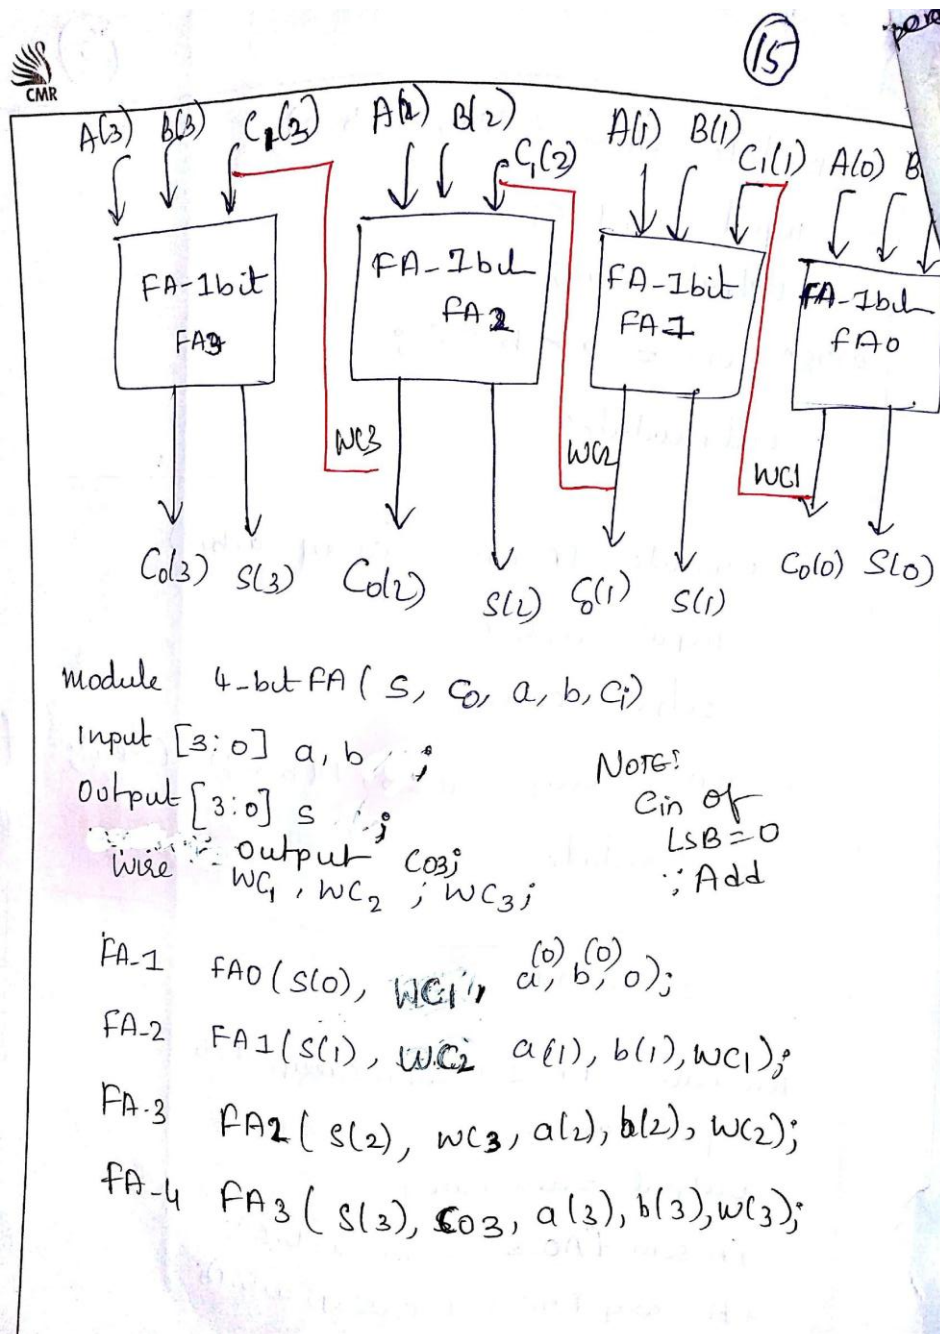 15
CMR
A(3) B(3) C1(3) A(2) B(2) C1(2) A(1) B(1) C1(1) A(0) B
FA-1bit FA3
FA-1bit FA2
FA-1bit FA1
FA-1bit FA0
WC3 WC2 WC1
Co(3) S(3) Co(2) S(2) Co(1) S(1) Co(0) S(0)
module 4-bit FA ( S, Co, a, b, Ci)
Input [3:0] a, b ;
Output [3:0] s ;
output CO3;
Wire WC1, WC2 ; WC3;
NOTE:
Cin of
LSB = 0
∵ Add
FA-1 FA0 ( S(0), WC1, a(0), b(0), 0);
FA-2 FA1 ( S(1), WC2 a(1), b(1), WC1);
FA-3 FA2 ( S(2), WC3, a(2), b(2), W(2);
FA-4 FA3 ( S(3), CO3, a(3), b(3), W(3);